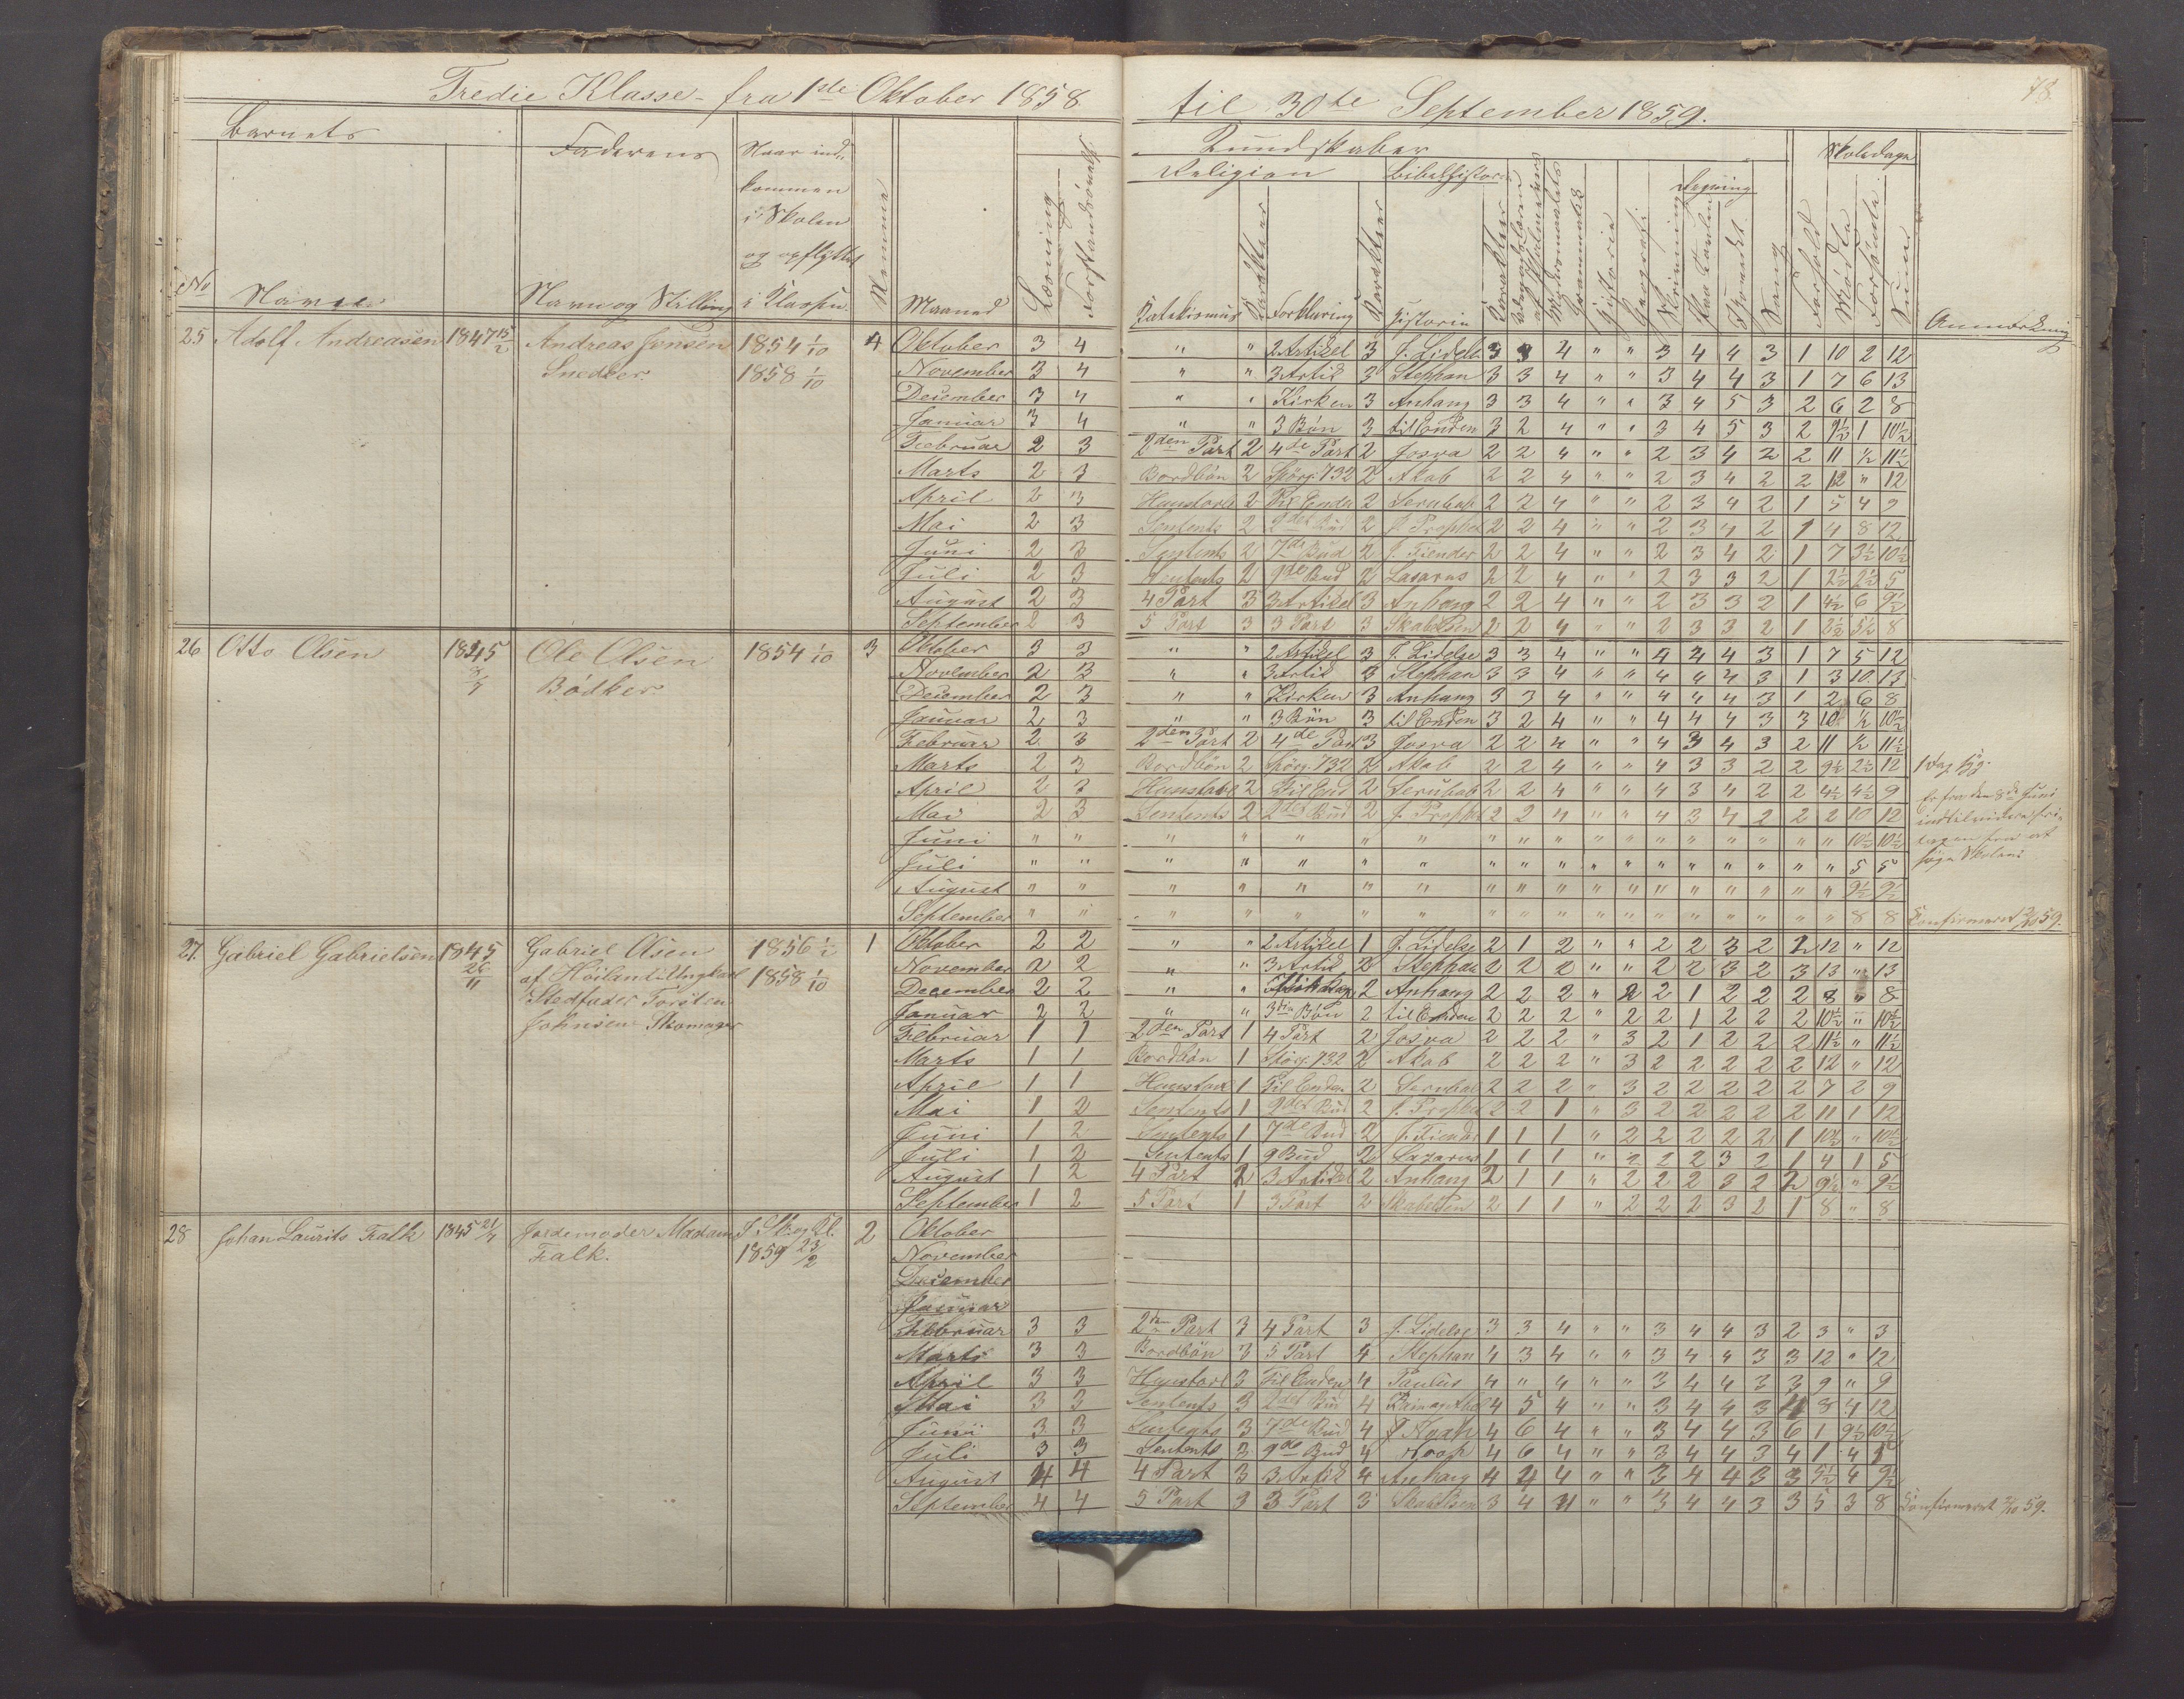 Tredie Klasse - fra 1ste Oktober 1858
til 30te September 1859.
78
Barnets
Faderens
Naar ind-
kommen
i Skolen
og opflyttet
i Klassen
No
Navn
Navn og Stilling
Nemme
Maaned
Lærning
Forstandsbrug
Kundskaber
Religion
Bibelhistorie
Regning
Skoledage
Katekismus
Karakter
Forklaring
Karakter
Historie
Karakter
Modersmaalets
Grammatik
Historie
Geografi
Skrivning
Paa Tavlen
Hovedet
Sang
Forhold
Mødte
Forsømte
Sum
Anmærkning
25 Adolf Andreasen 1847 15/2 Andreas Jensen 1854 1/10 4 Oktober 3 4 " " 2 Artikel 3 J. Lidelse 3 3 4 " " 3 4 4 3 1 10 2 12
Snedker. 1858 1/10 November 3 4 " " 3 Artik 3 Stephan 3 3 4 " " 3 4 4 3 1 7 6 13
December 3 4 " " Kirken 3 Anhang 3 3 4 " " 3 4 5 3 2 6 2 8
Januar 3 4 " " 3 Bøn 3 til Enden 3 2 4 " " 3 4 5 3 2 9½ 1 10½
Februar 2 3 2den Part 2 4de Part 2 Josva 2 2 4 " " 2 3 4 2 2 11 ½ 11½
Marts 2 3 Bordbøn 2 Spørg. 732 2 Akab 2 2 4 " " 2 3 4 2 2 12 " 12
April 2 3 Hunstavl 2 Til Enden 2 Serubab 2 2 4 " " 2 3 4 2 1 5 4 9
Mai 2 3 Sentents 2 2det Bud 2 J. Prophet 2 2 4 " " 2 3 4 2 1 4 8 12
Juni 2 3 Sentents 2 7de Bud 2 J. Fiender 2 2 4 " " 2 3 4 2 1 7 3½ 10½
Juli 2 3 Sentents 2 9de Bud 2 Lasarus 2 2 4 " " 2 3 3 2 1 2½ 2½ 5
August 2 3 4 Part 3 3 Artikel 3 Anhang 2 2 4 " " 2 3 3 2 1 4½ 6 9½
September 2 3 5 Part 3 3 Part 3 Skabelsen 2 2 4 " " 2 3 3 2 1 2½ 5½ 8
26 Otto Olsen 1845 Ole Olsen 1854 1/10 3 Oktober 3 3 " " 2 Artikel 3 J. Lidelse 3 3 4 " " 4 4 4 3 1 7 5 12
Bødker November 2 3 " " 3 Artik 3 Stephan 3 3 4 " " 4 4 4 3 1 3 10 13
December 2 3 " " Kirken 3 Anhang 3 3 4 " " 4 4 4 3 1 2 6 8
Januar 2 3 " " 3 Bøn 3 til Enden 3 2 4 " " 4 4 4 3 3 10 ½ 10½
Februar 2 3 2den Part 2 4de Part 3 Josva 2 2 4 " " 4 3 4 3 2 11 ½ 11½
Marts 2 3 Bordbøn 2 Spørg. 732 2 Akab 2 2 4 " " 4 3 3 2 2 9½ 2½ 12 1 Dag syg.
April 2 3 Hunstavl 2 Til End 2 Serubab 2 2 4 " " 4 3 4 2 2 4½ 4½ 9
Mai 2 3 Sentents 2 2det Bud 2 J. Prophet 2 2 4 " " 4 3 4 2 2 2 10 12
Er fra den 8de Juni
indtil videre fri-
tagen for at
søge Skolen.
Juni " " " " " " " " " " " " " " " " " " 10½ 10½
Juli " " " " " " " " " " " " " " " " " " 5 5
August " " " " " " " " " " " " " " " " " " 9½ 9½
September " " " " " " " " " " " " " " " " " " 8 8 Konfirmeret 2/10 59.
27. Gabriel Gabrielsen 1845 Gabriel Olsen 1856 1/1 1 Oktober 2 2 " " 2 Artikel 1 J. Lidelse 2 1 2 " " 2 2 3 2 2 12 " 12
26/11 af Høiland i Ungkarl 1858 1/10 November 2 2 " " 3 Artik 2 Stephan 2 2 2 " " 2 2 3 2 3 13 " 13
Stedfader Torsten December 2 2 " " 2 Anhang 2 2 2 " 2 2 1 2 2 2 8 " 8
Johnsen Skomager Januar 2 2 " " 3die Bøn 2 til Enden 2 2 2 " 2 2 1 2 2 2 10½ " 10½
Februar 1 1 2den Part 1 4 Part 2 Josva 2 2 2 " 3 2 1 2 2 2 11½ " 11½
Marts 1 1 Bordbøn 1 Spørg. 732 2 Akab 2 2 2 " 3 2 2 2 2 2 12 " 12
April 1 1 Hunstavl 1 Til Enden 2 Serubab 2 2 2 " 3 2 2 2 2 2 7 2 9
Mai 1 2 Sentents 1 2det Bud 2 J. Prophet 2 2 1 " 3 2 2 2 2 2 11 1 12
Juni 1 2 Sentents 1 7de Bud 2 J. Fiender 1 1 1 " 2 2 2 2 2 1 10½ " 10½
Juli 1 2 Sentents 1 9 Bud 2 Lazarus 1 1 1 " 2 2 2 3 2 1 4 1 5
August 1 2 4 Part 2 3 Artikel 2 Anhang 2 1 1 " 2 2 2 3 2 2 9½ " 9½
September 1 2 5 Part 1 3 Part 2 Skabelsen 2 1 1 " 2 2 2 3 2 1 8 " 8
28 Johan Laurits Falk 1845 21/7 Jordemoder Madam J. Sk. og Kl. 2 Oktober
Falk. 1859 23/2 November
December
Januar
Februar 3 3 2den Part 3 4 Part 3 J. Lidelse 3 3 4 " " 3 4 4 3 2 3 " 3
Marts 3 3 Bordbøn 3 5 Part 4 Stephan 4 3 4 " " 3 4 4 3 3 12 " 12
April 3 3 Hunstavl 3 Til Enden 4 Paulus 4 " 4 " " 3 4 4 3 3 9 " 9
Mai 3 3 Sentents 3 2det Bud 4 Kain og Abel 4 5 4 " " 3 4 4 3 4 8 4 12
Juni 3 3 Sentents 3 7de Bud 4 J Noah 4 6 4 " " 3 4 4 3 6 1 9½ 10½
Juli 3 3 Sentents 3 9de Bud 4 Noah 4 6 4 " " 3 4 4 3 4 1 4 5
August 4 4 4 Part 3 3 Artik 4 Anhang 4 4 4 " " 3 4 4 3 3 5½ 4 9½
September 4 4 5 Part 3 3 Part 3 Skabelsen 3 4 4 " " 3 4 4 3 3 5 3 8 Konfirmeret 2/10 59.